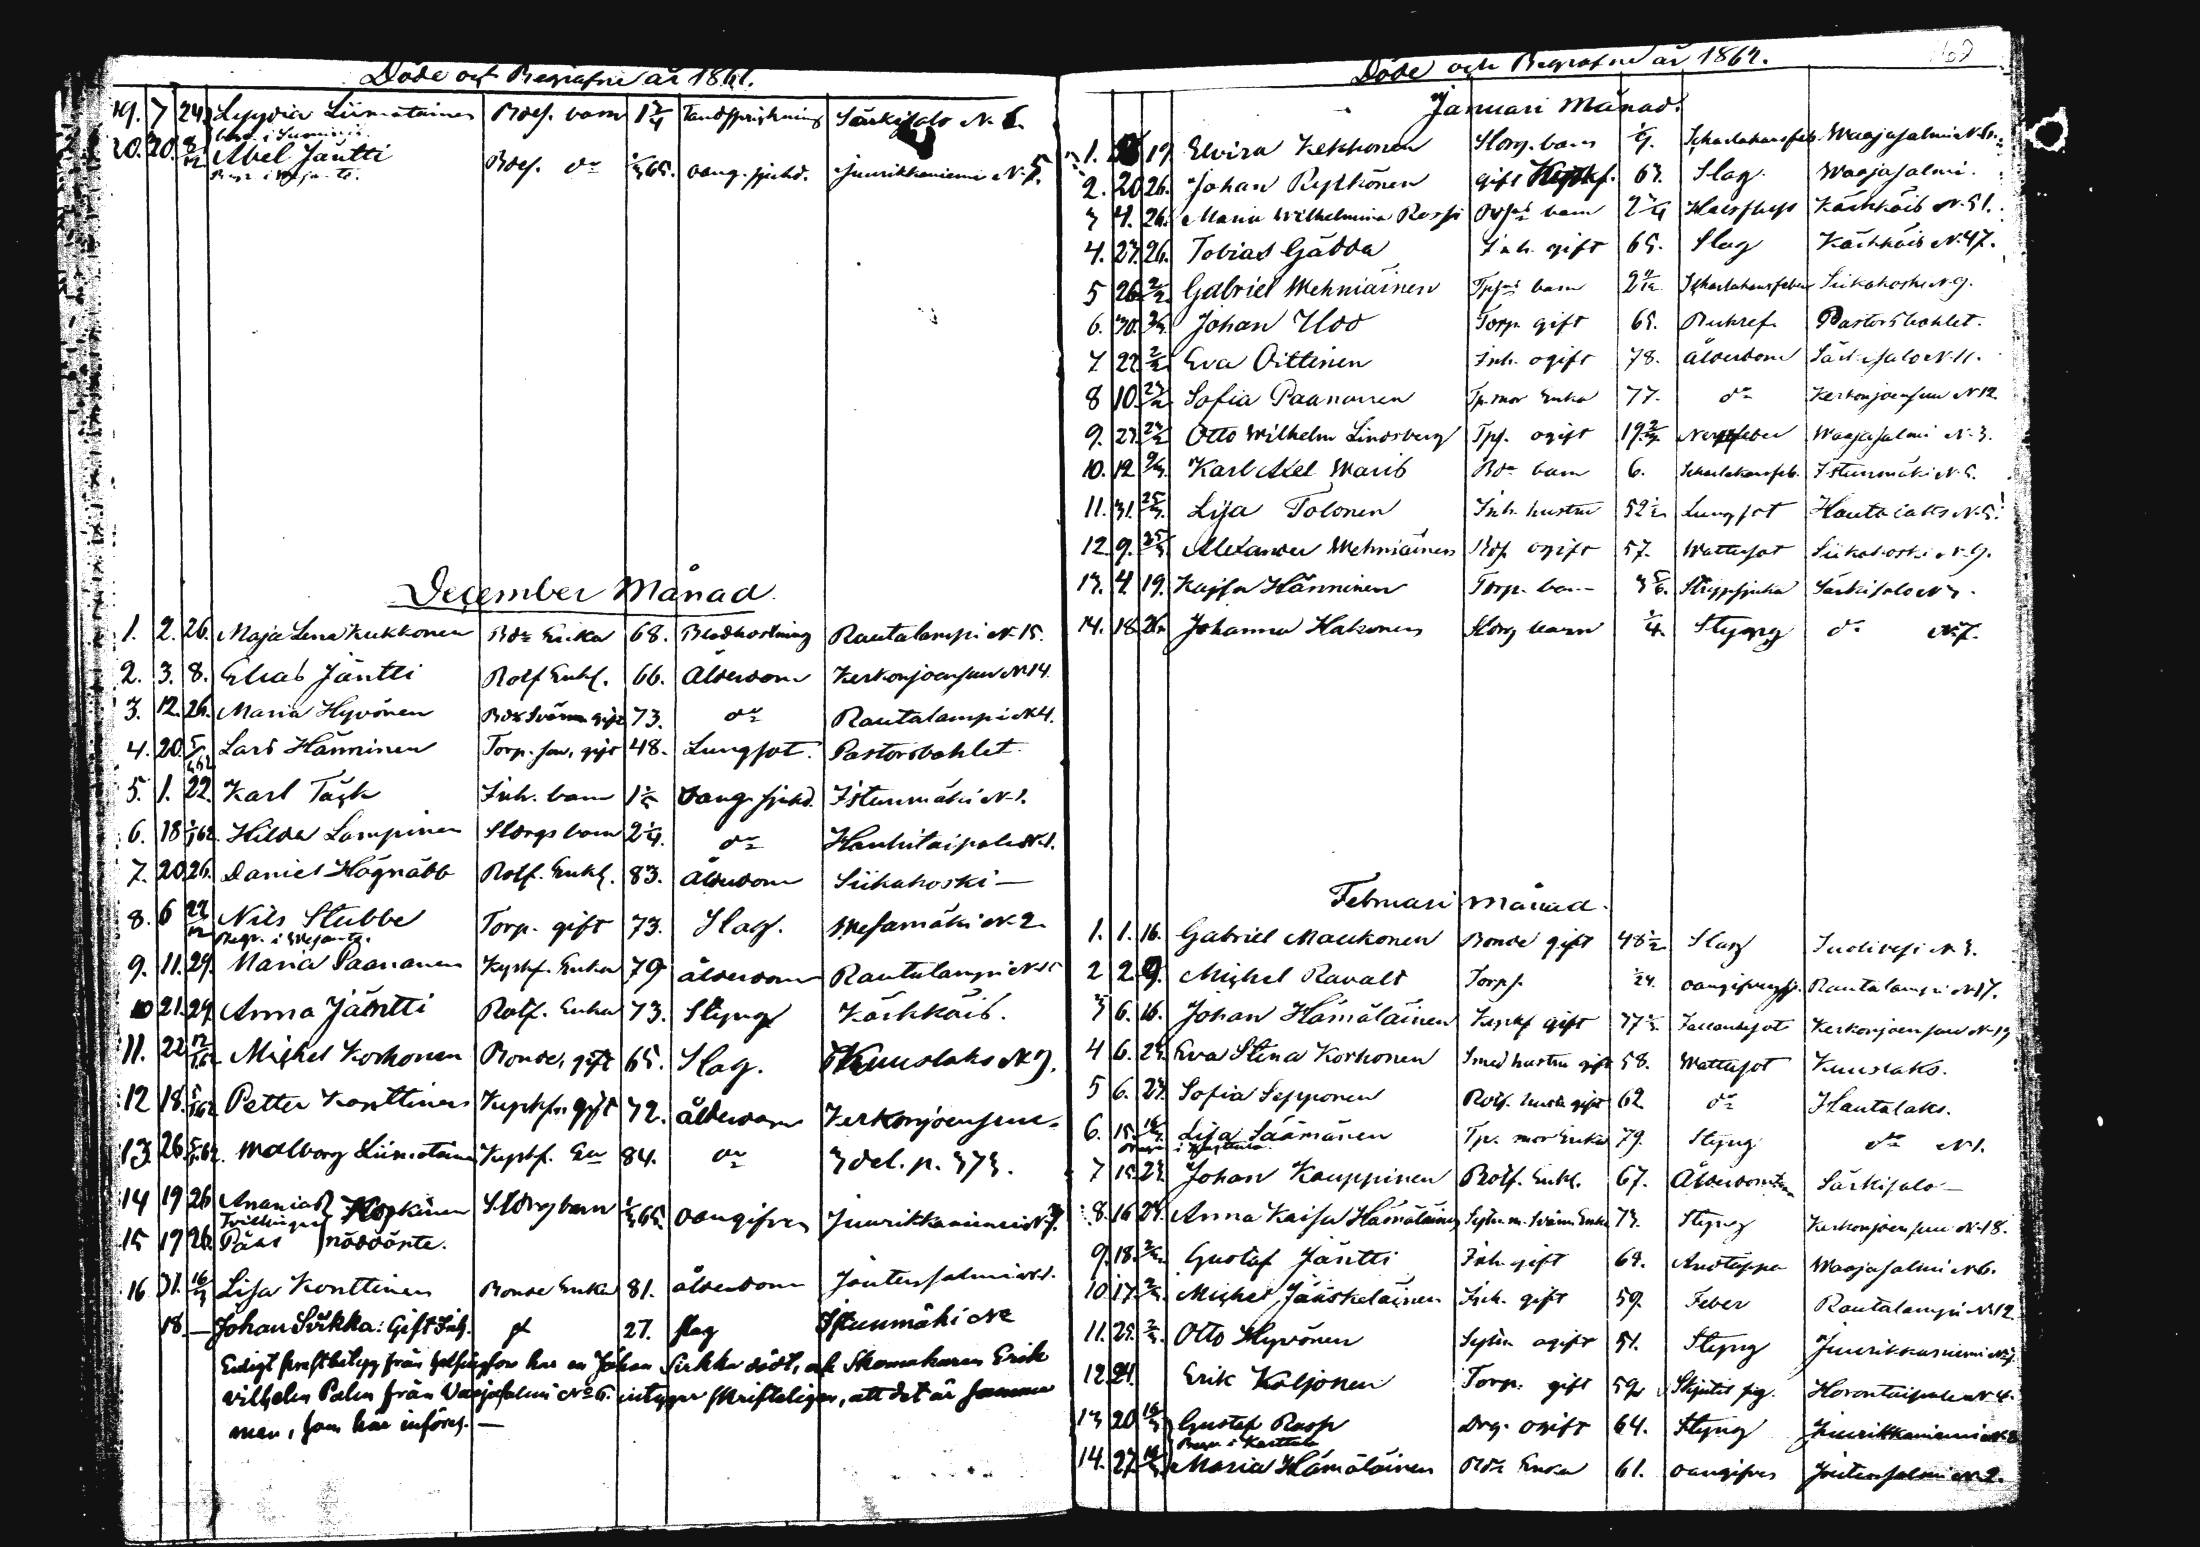 Döde och Begrafne år 1861.
19. 7 24 Lyydia Liimatainen Bdes. barn 1 3/4 Tandsprickning Särkisalo N. 6.
20. 20. 8/12 Abel Jäntti Bdes. do 1/365. oang. sjukd. Juurikkaniemi N. 5.
December Månad.
1. 2. 26. Maja Lena Kukkonen Bde Enka 68. Blodhostning Rautalampi N. 15.
2. 3. 8. Elias Jäntti Rotf Enkl. 66. Ålderdom Kerkonjoensuu N. 14.
3. 12. 26. Maria Hyvönen gift 73. do Rautalampi N. 4.
4. 20. 5/1 62 Lars Hänninen Torp. son, gift 48. Lungsot. Pastorsbohlet.
5. 1. 22. Karl Täck Inh. barn 1 1/2 oang. sjukd. Istunmäki N. 1.
6. 18 1/1 62. Hilda Lampinen Sldrgs barn 2 1/4. do Hankitaipale N. 1.
7. 20 26. Daniel Högnäbb Rotf. Enkl. 83. ålderdom Siikakoski —
8. 6 22/12 Nils Stubbe Torp. gift 73. Slag. Mesamäki N. 2.
Begr. i
9. 11. 29. Maria Paananen Kyrkf. Enka 79 ålderdom Rautalampi N. 15
10 21. 29. Anna Jäntti Rotf. Enka 73. Styng Kärkkäis.
11. 22 12/1 62 Michel Korhonen Bonde, gift 65. Slag. Kuuslaks N. 9.
12 18. 5/1 62 Petter Konttinen Kyrkf. gift 72. ålderdom Kerkonjoensuu
13. 26. 5/1 62. Malborg Liimatainen Kyrkf. Ea 84. do 3 del. p. 373.
14 19 26 Ananias Sldrg barn 1/365. oangifven Juurikkaniemi N. 7.
Tvillingar
15 19 26. Påhl nöddöpte.
16. 31. 16/3 Lisa Konttinen Bonde Enka 81. ålderdom Jouten salmi N. 1.
18. — Johan Sirkka: Gift Inh. 27. slag Istunmäki No
Enligt från Helsingfors har en Johan Sirkka dödt, och Skomakaren Erik
Vilhelm Palen från Vaajasalmi No 6. intygar skrifteligen, att det är samme
man, som här införes. —
Döde och Begrafne år 1862.
Januari Månad.
1. 19 Elvira Kekkonen Sldrg. barn Scharlakansfeb. Waajasalmi N. 6.
2. 20 26. Johan Rytkönen gift 63. Slag. Waajasalmi.
3 4. 26. Maria Wilhelmina Rossi barn Halsfluss Kärkkäis N. 51.
4. 23. 26. Tobias Gädda Inh. gift 65. Slag Kärkkäis N. 47.
5 26 2/2 Gabriel Wehniäinen barn Scharlakansfeber Siikakoski N. 9.
6. 30. Johan Udd Torp. gift 65. Pastorsbohlet.
7 22 2/2 Eva Oittinen Inh. ogift 78. ålderdom Särkisalo N. 11.
8 10 23/2 Sofia Paananen Tp. mor Enka 77. do Kerkonjoensuu N. 12
9. 23. Otto Wilhelm Lindsberg Tpf. ogift Nervfeber Waajasalmi N. 3.
10. 12 9/3 Karl Axel Waris Bde barn 6. Scharlakansfeb. Istunmäki N. 5.
11. 31. 25/3. Lisa Tolonen Inh. hustru 52 1/2 Lungsot Hautalaks N. 5.
12. 9. 25/3 Alexander Wehniäinen ogift 57. Wattusot Siikakoski N. 9.
13. 4. 19. Kaisa Hänninen Torp. barn 3 5/6. Strypsjuka Särkisalo N. 3.
14. 18 26. Johanna Hakonen Sldrg barn 1/4. Styng do N. 7.
Februari Månad.
1. 1. 16. Gabriel Maukonen Bonde gift 48 1/2 Slag Suolivesi N. 3.
2 2 9. Michel Ravalt Torps. 1/24. Rautalampi N. 17.
3 6. 16. Johan Hämäläinen Kyrkf gift 37 1/2 Fallandesot Kerkonjoensuu N. 19
4 6. 23. Eva Stina Korhonen Smed hustru gift 58. Wattusot Kuuslaks.
5 6. 23. Sofia Sepponen Rotf. hustru gift 62 do Hautalaks.
6. 15. 16/3 Lisa Säämänen Tp. mor Enka 79. Styng do N. 1.
7 15 23. Johan Kauppinen Rotf. Enkl. 67. Ålderdom Särkisalo —
8. 16 23. Anna Kaisa Hämäläinen Enka 73. Styng Kerkonjoensuu N. 18.
9. 18. Gustaf Jäntti Inh. gift 64. Andtäppa Waajasalmi N. 6.
10 17. Michel Jääskeläinen Inh. gift 59. Feber Rautalampi N. 12
11. 25. Otto Hyvönen Sytn. ogift 51. Styng Juurikkaniemi N. 7.
12. 24. Erik Koljonen Torp. gift 59. Skjutit sig. Horontaipale N. 4.
13 20 16/3 Gustaf Rasp Drg. ogift 64. Styng Juurikkaniemi N. 8
Begr. i Karttula
14. 27. 16/3 Maria Hämäläinen Bde Enka 61. oangifven Joutensalmi N. 2.